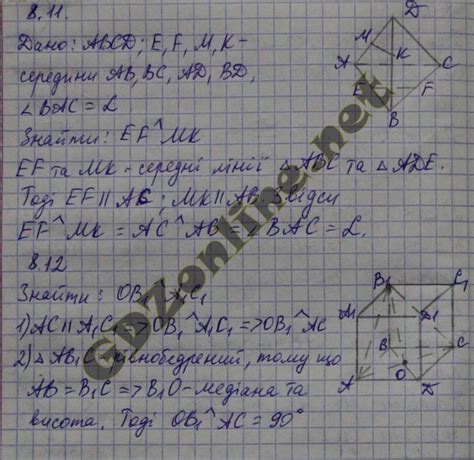 8.11.
Дано: ABCD; E, F, M, K-
середини AB, BC, AD, BD,
∠BAC = L
Знайти: EF^MK
EF та MK - середні лінії △ABC та △ADE.
Тоді EF ∥ AC; MK ∥ AB. Звідси
EF^MK = AC^AB = ∠BAC = L.
8.12
Знайти: OB₁^A₁C₁
1) AC ∥ A₁C₁ => OB₁^A₁C₁ => OB₁^AC
2) △AB₁C - рівнобедрений, тому що
AB = B₁C => B₁O - медіана та
висота. Тоді OB₁^AC = 90°
D
M
K
A
C
E
F
B
B₁
C₁
A₁
D₁
B
C
A
O
D
GDZonline.net